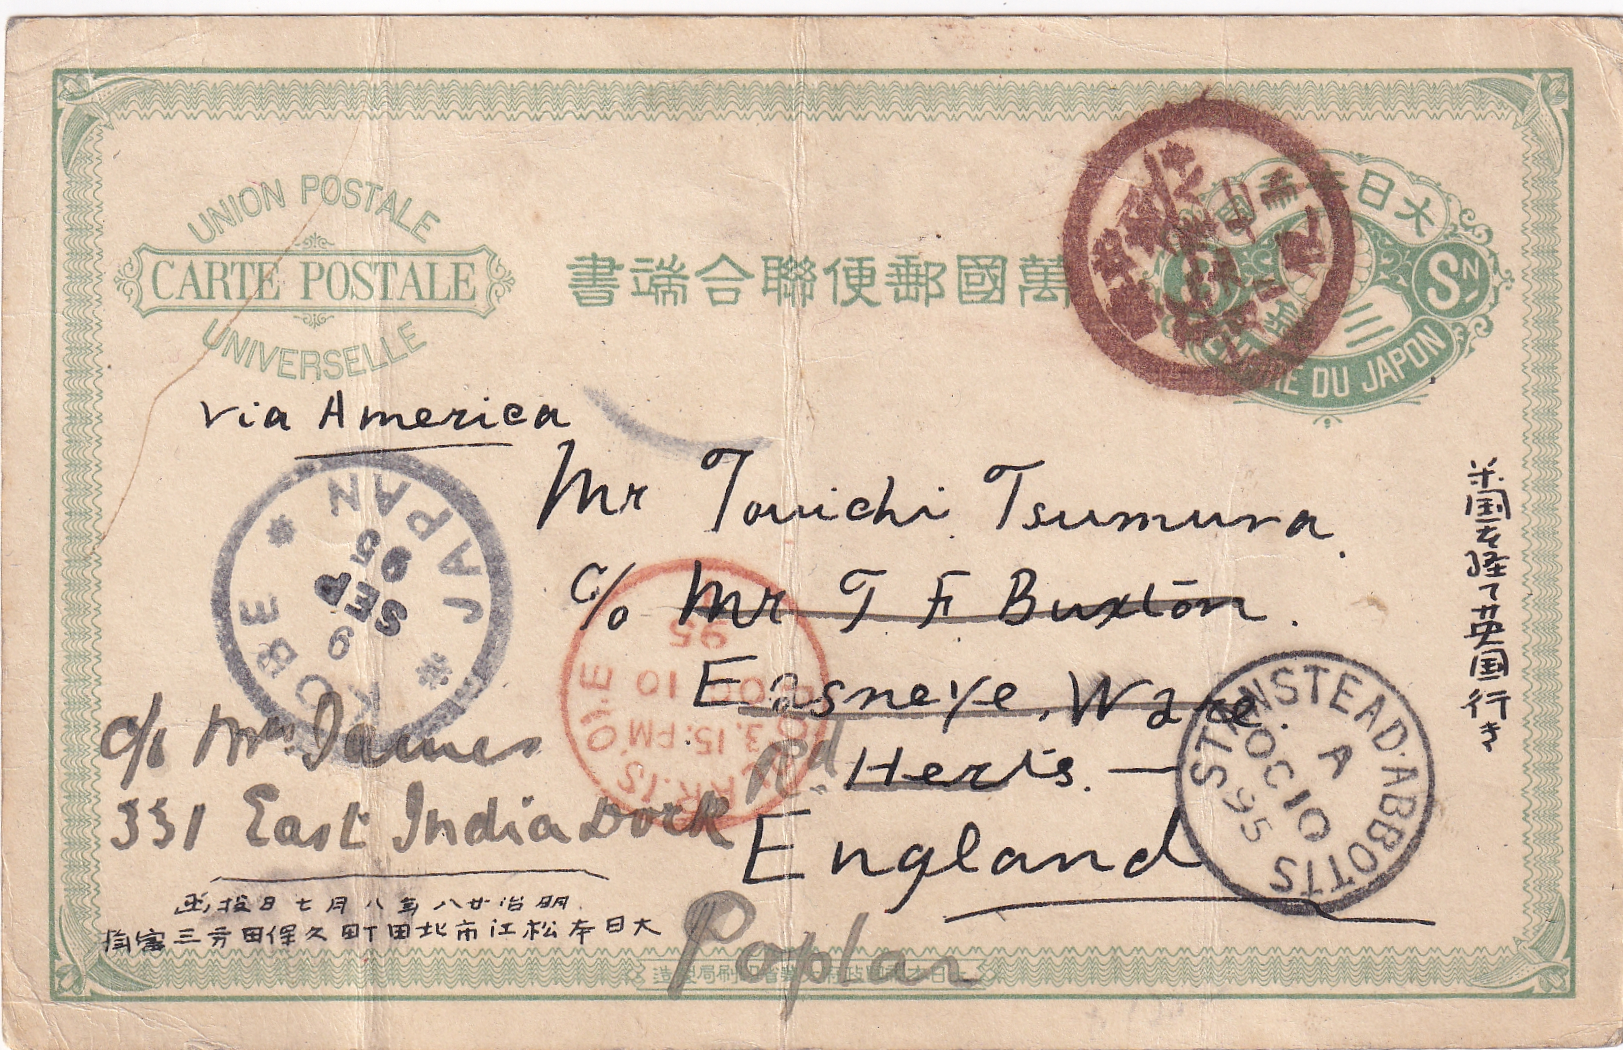 UNION POSTALE
CARTE POSTALE
UNIVERSELLE
書端合聯便郵國萬
大日本帝國
Sɴ
DU JAPON
via America
Mr Touichi Tsumura.
c/o Mr T F Buxton.
Easneye, Ware.
Herts. —
England
c/o Mrs James
331 East India Dock Rd
Poplar
米国を経て英国行き
明治廿八年八月七日投函
大日本松江市北田町久保田方三富
KOBE
JAPAN
9
SEP
95
3.15.PM
OC 10
95
STANSTEAD·ABBOTTS
A
OC 10
95